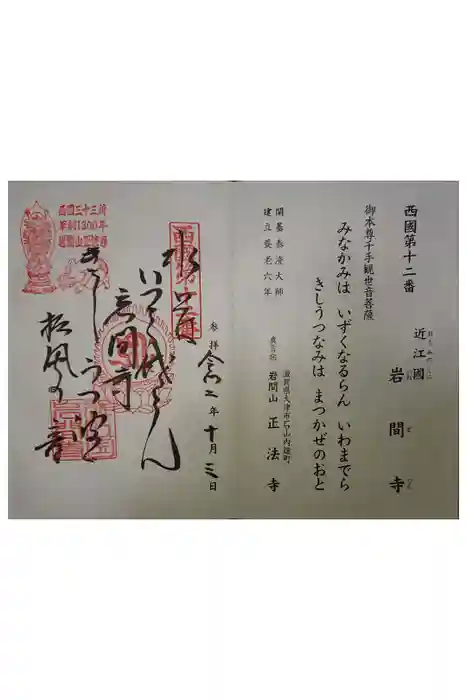 西國第十二番
近江國 岩間寺
おうみのくに いわまでら
御本尊千手観世音菩薩
みなかみは いずくなるらん いわまでら
きしうつなみは まつかぜのおと
開基泰澄大師
建立養老六年
滋賀県大津市石山内畑町
真言宗 岩間山 正法寺
参拝 令和二年十月三日
水上は
いづくなるらん
岩間寺
きしうつ波は
松風の音
西国三十三所
草創1300年